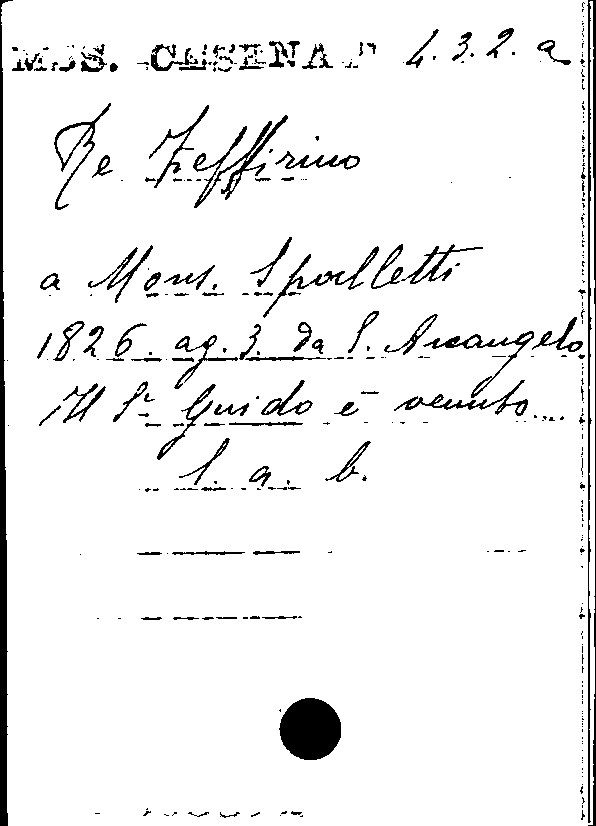 MSS. CESENA 4.3.2.a
Re Zeffirino
a Mons. Spalletti
1826. ag. 3. da S. Arcangelo
Il Sr Guido è venuto....
l. a. b.